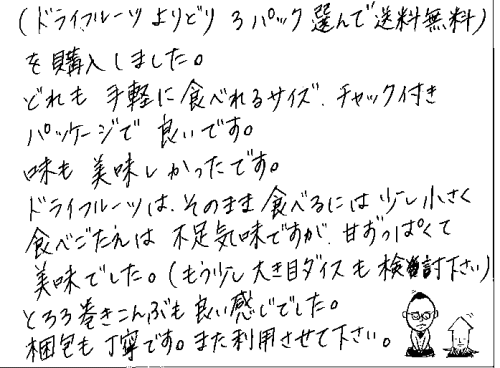 (ドライフルーツ よりどり 3パック 選んで 送料無料)
を購入しました。
どれも 手軽に 食べれるサイズ、チャック付き
パッケージで 良いです。
味も 美味しかったです。
ドライフルーツは、そのまま 食べるには 少し小さく
食べごたえは 不足気味ですが、甘ずっぱくて
美味でした。(もう少し 大き目ダイスも 検討下さい)
とろろ巻きこんぶも 良い感じでした。
梱包も 丁寧です。また利用させて下さい。